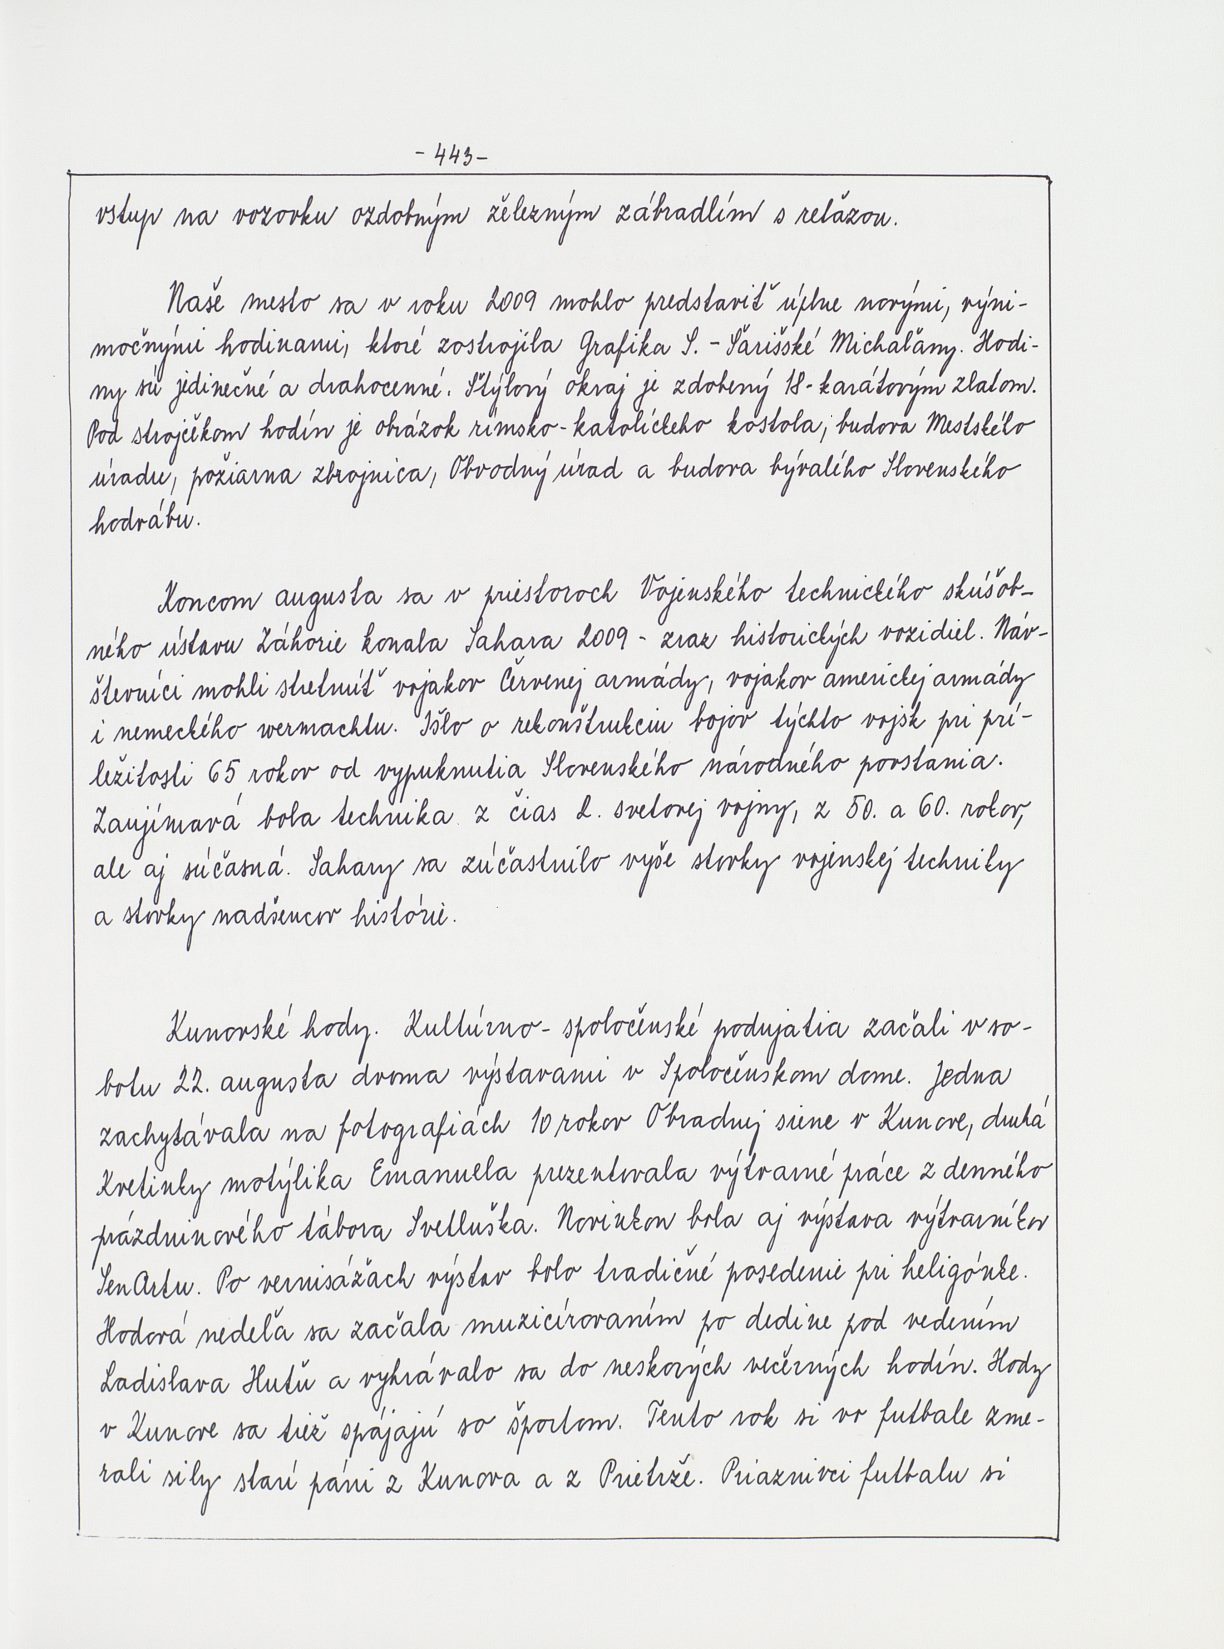 - 443 -
vstup na vozovku ozdobným železným zábradlím s reťazou.
Naše mesto sa v roku 2009 mohlo predstaviť úplne novými, výni-
močnými hodinami, ktoré zostrojila Grafika S. - Šarišské Michaľany. Hodi-
ny sú jedinečné a drahocenné. Štýlový okraj je zdobený 18-karátovým zlatom.
Pod strojčekom hodín je obrázok rímsko-katolíckeho kostola, budova Mestského
úradu, požiarna zbrojnica, Obvodný úrad a budova bývalého Slovenského
hodvábu.
Koncom augusta sa v priestoroch Vojenského technického skúšob-
ného ústavu Záhorie konala Sahara 2009 - zraz historických vozidiel. Náv-
števníci mohli stretnúť vojakov Červenej armády, vojakov americkej armády
i nemeckého wermachtu. Išlo o rekonštrukciu bojov týchto vojsk pri prí-
ležitosti 65 rokov od vypuknutia Slovenského národného povstania.
Zaujímavá bola technika z čias 2. svetovej vojny, z 50. a 60. rokov,
ale aj súčasná. Sahary sa zúčastnilo vyše stovky vojenskej techniky
a stovky nadšencov histórie.
Kunovské hody. Kultúrno-spoločenské podujatia začali v so-
botu 22. augusta dvoma výstavami v Spoločenskom dome. Jedna
zachytávala na fotografiách 10 rokov Obradnej siene v Kunove, druhá
Kvetinky motýlika Emanuela prezentovala výtvarné práce z denného
prázdninového tábora Svetluška. Novinkou bola aj výstava výtvarníkov
SenArtu. Po vernisážach výstav bolo tradičné posedenie pri heligónke.
Hodová nedeľa sa začala muzicírovaním po dedine pod vedením
Ladislava Hutťu a vyhrávalo sa do neskorých večerných hodín. Hody
v Kunove sa tiež spájajú so športom. Tento rok si vo futbale zme-
rali sily starí páni z Kunova a z Prietrže. Priaznivci futbalu si